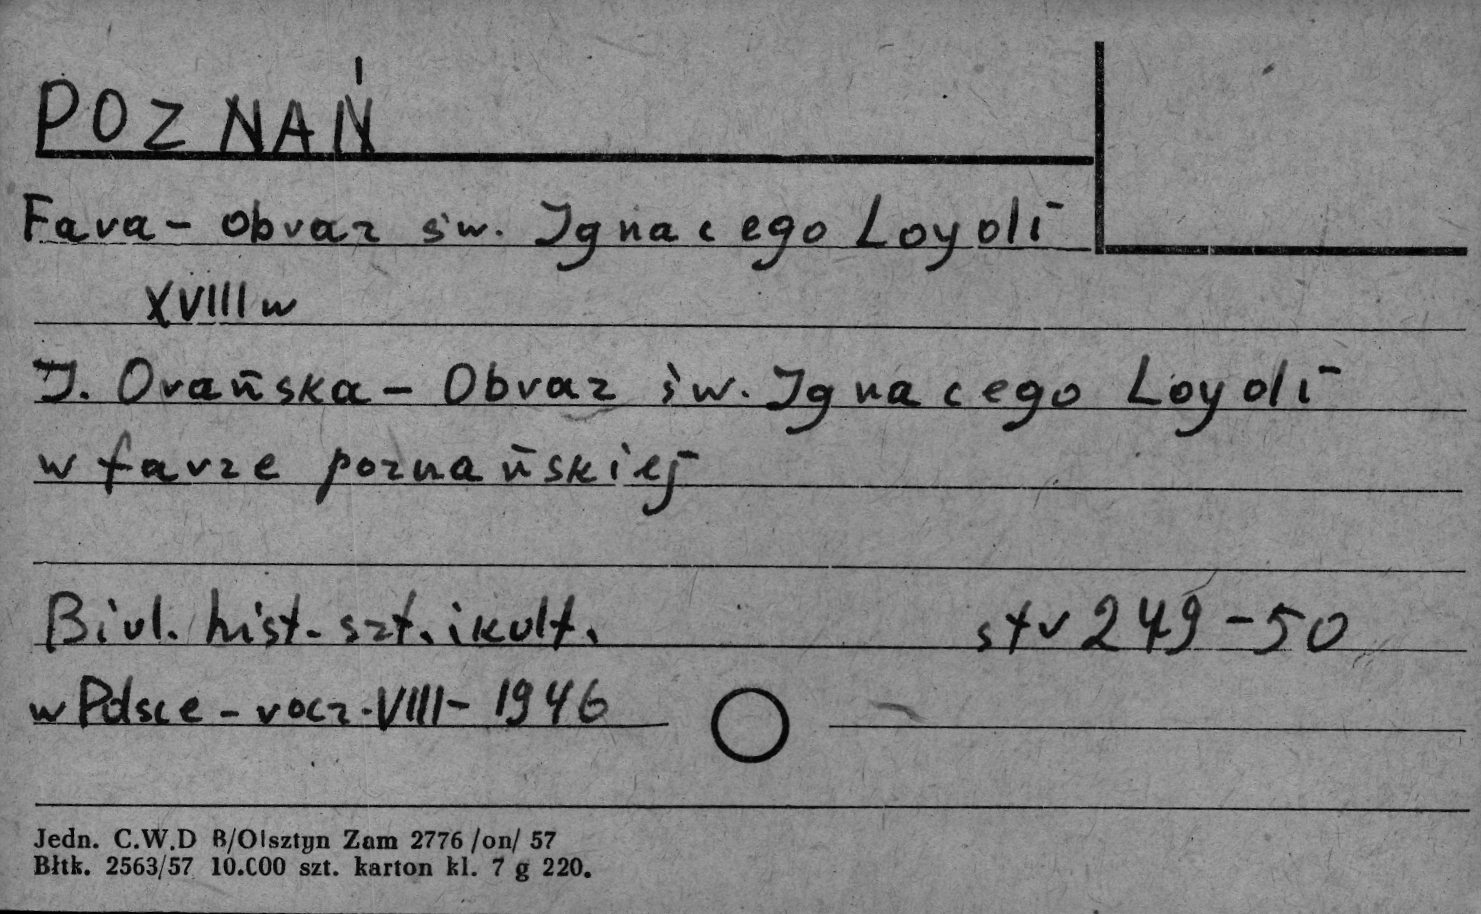 POZNAŃ
Fara - obraz św. Ignacego Loyoli
XVIII w
J. Orańska - Obraz św. Ignacego Loyoli
w farze poznańskiej
Biul. hist. szt. i kult. str 249-50
w Polsce - rocz. VIII - 1946
Jedn. C.W.D B/Olsztyn Zam 2776 /on/ 57
Błtk. 2563/57 10.000 szt. karton kl. 7 g 220.